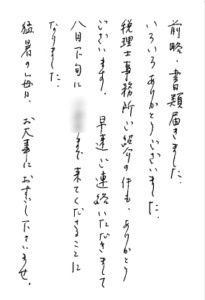 前略、書類届きました。
いろいろありがとうございました。
税理士事務所ご紹介の件も、ありがとう
ございます。早速ご連絡いただきまして
八月下旬に まで来てくださることに
なりました。
猛暑の毎日、お大事にお過し下さいませ。